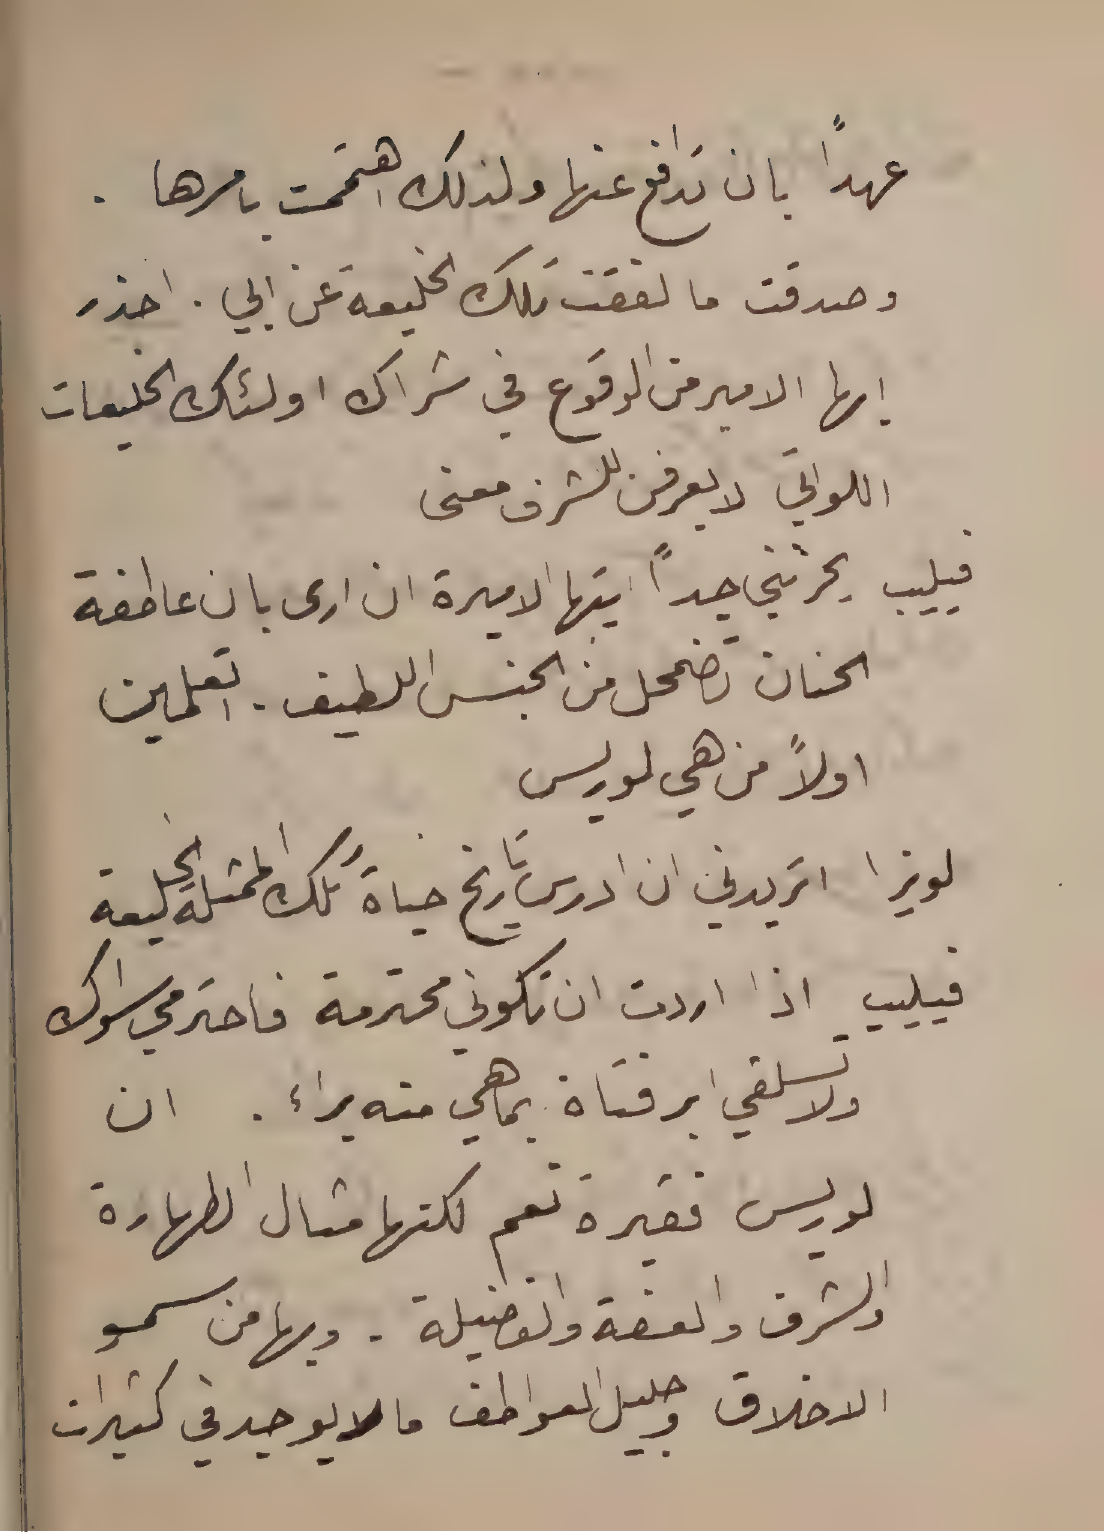 عهداً بان تدافع عنها ولذلك اهتممت بامرها .
وصدقت ما لفقت تلك الخليعة عن ابي . احذر
ايها الامير من الوقوع في شراك اولئك الخليعات
اللواتي لا يعرفن للشرف معنى
فيليب يحزنني جداً ايتها الاميرة ان ارى بان عاطفة
الحنان تضمحل من الجنس اللطيف . اتعلمين
اولاً من هي لوريس
لويزا اتريدني ان ادرس تاريخ حياة تلك الممثلة الخليعة
فيليب اذا اردت ان تكوني محترمة فاحترمي سواك
ولا تلقي ابر فتاة بما هي منه براء . ان
لوريس فقيرة نعم لكنها مثال الطهارة
والشرف والعفة والفضيلة . وبها من سمو
الاخلاق وجليل العواطف ما لا يوجد في كثيرات